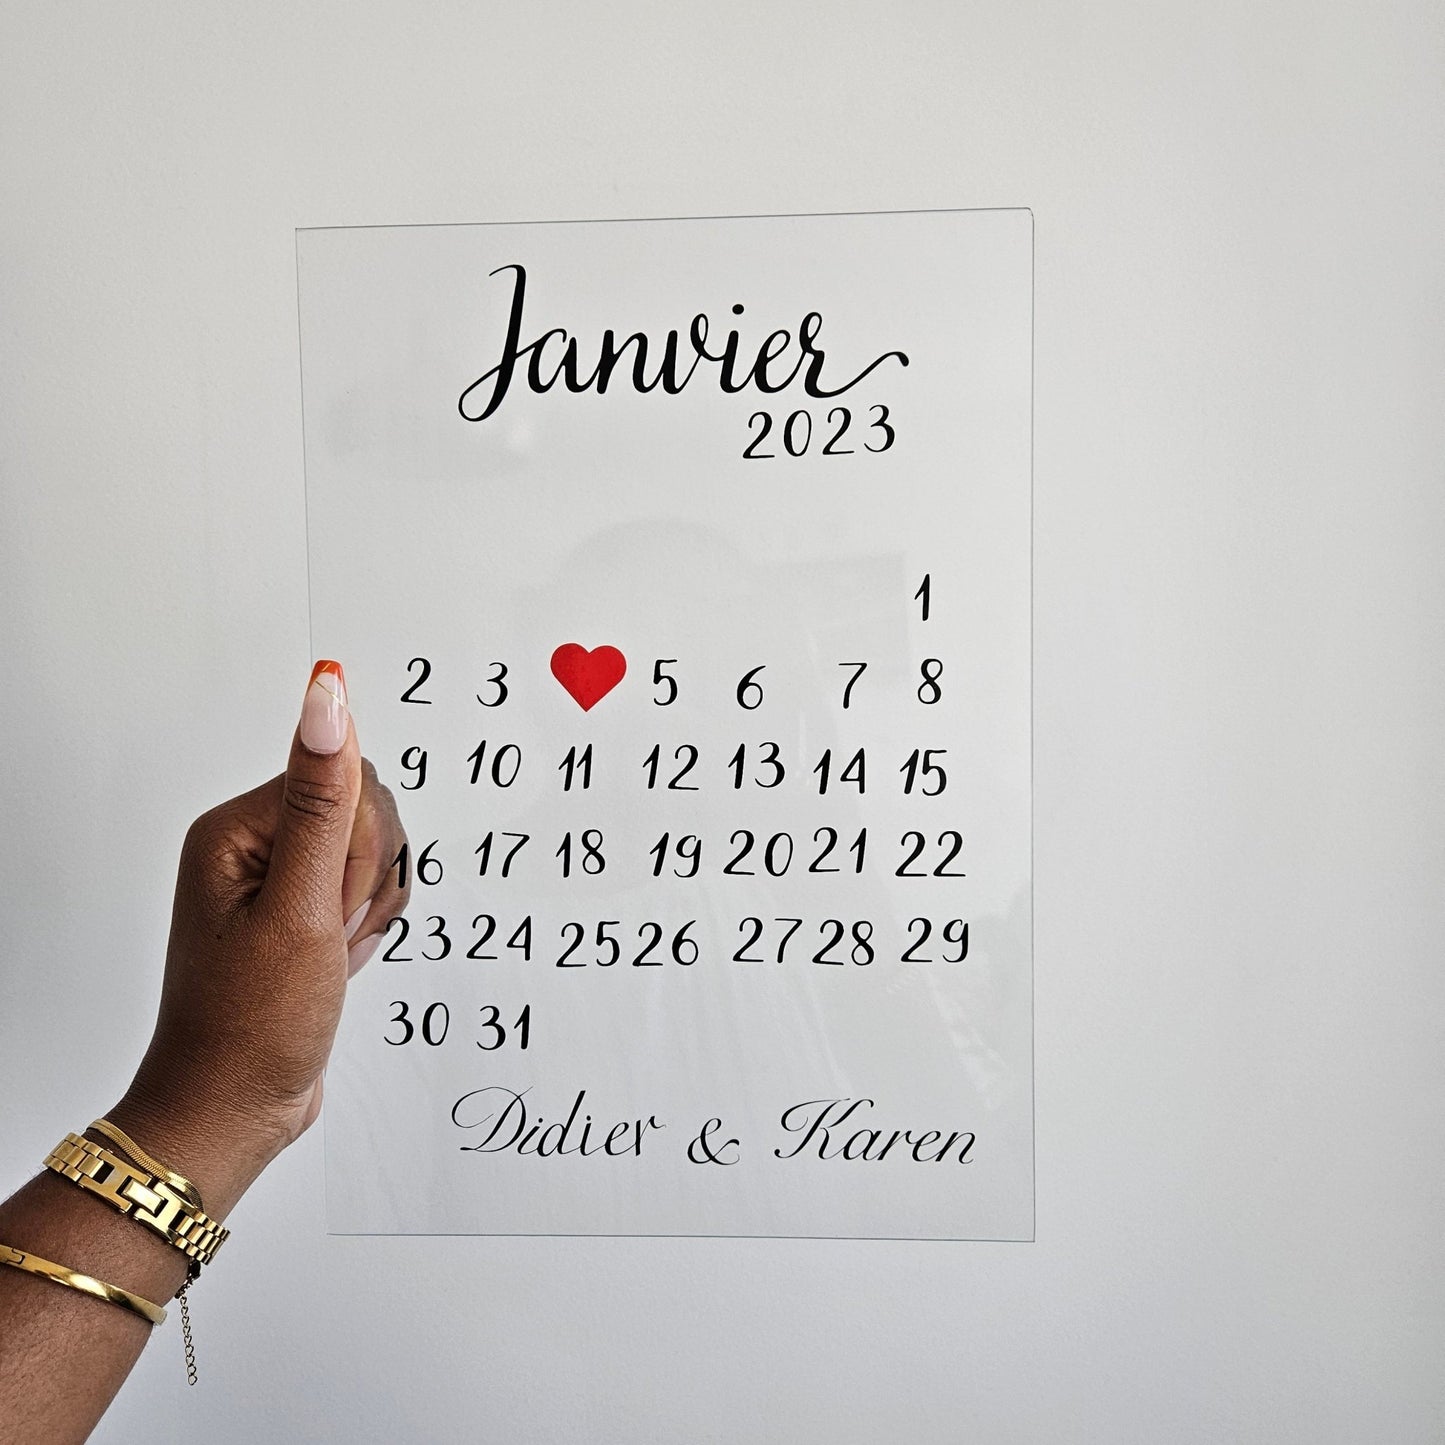 Janvier
2023
1
2 3 5 6 7 8
9 10 11 12 13 14 15
16 17 18 19 20 21 22
23 24 25 26 27 28 29
30 31
Didier & Karen